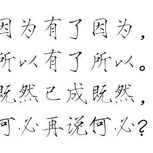 因为有了因为，
所以有了所以。
既然已成既然，
何必再说何必？